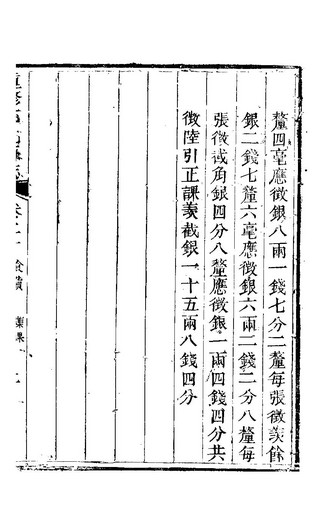 釐四毫應徵銀八兩一錢七分二釐每張徵羨餘
銀二錢七釐六毫應徵銀六兩二錢二分八釐每
張徵截角銀四分八釐應徵銀一兩四錢四分共
徵陸引正課羨截銀一十五兩八錢四分
志 卷二十 食貨